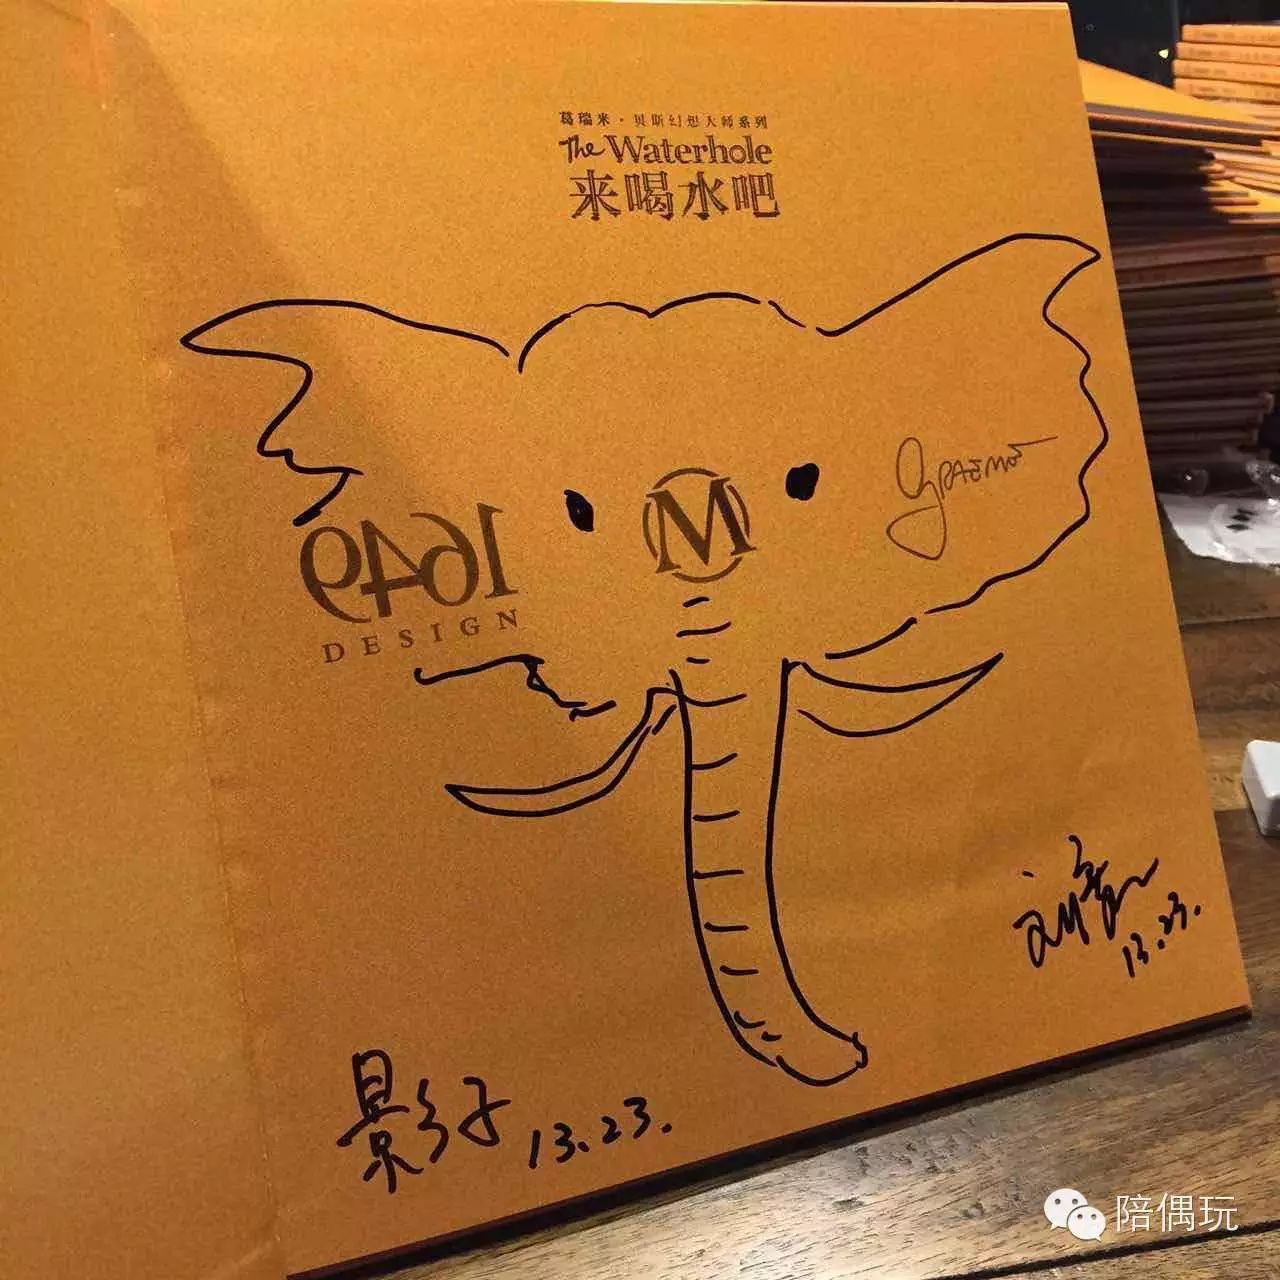 葛瑞米·贝斯幻想大师系列
The Waterhole
来喝水吧
Graeme
M
1649
DESIGN
13.23.
影子 13.23.
陪偶玩